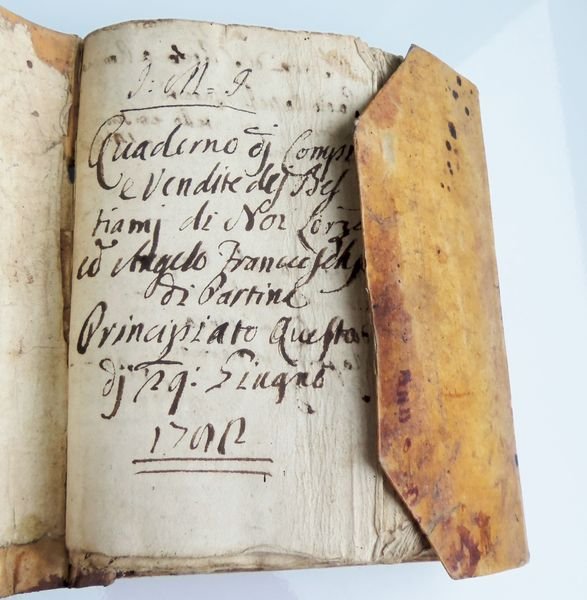 J: M = J:
Quaderno dj Comp
e Vendite dej Bes
tiamj di Noi Lorz
ed Angelo Franceschj
di Partina
Principiato Questo
dj Giugno